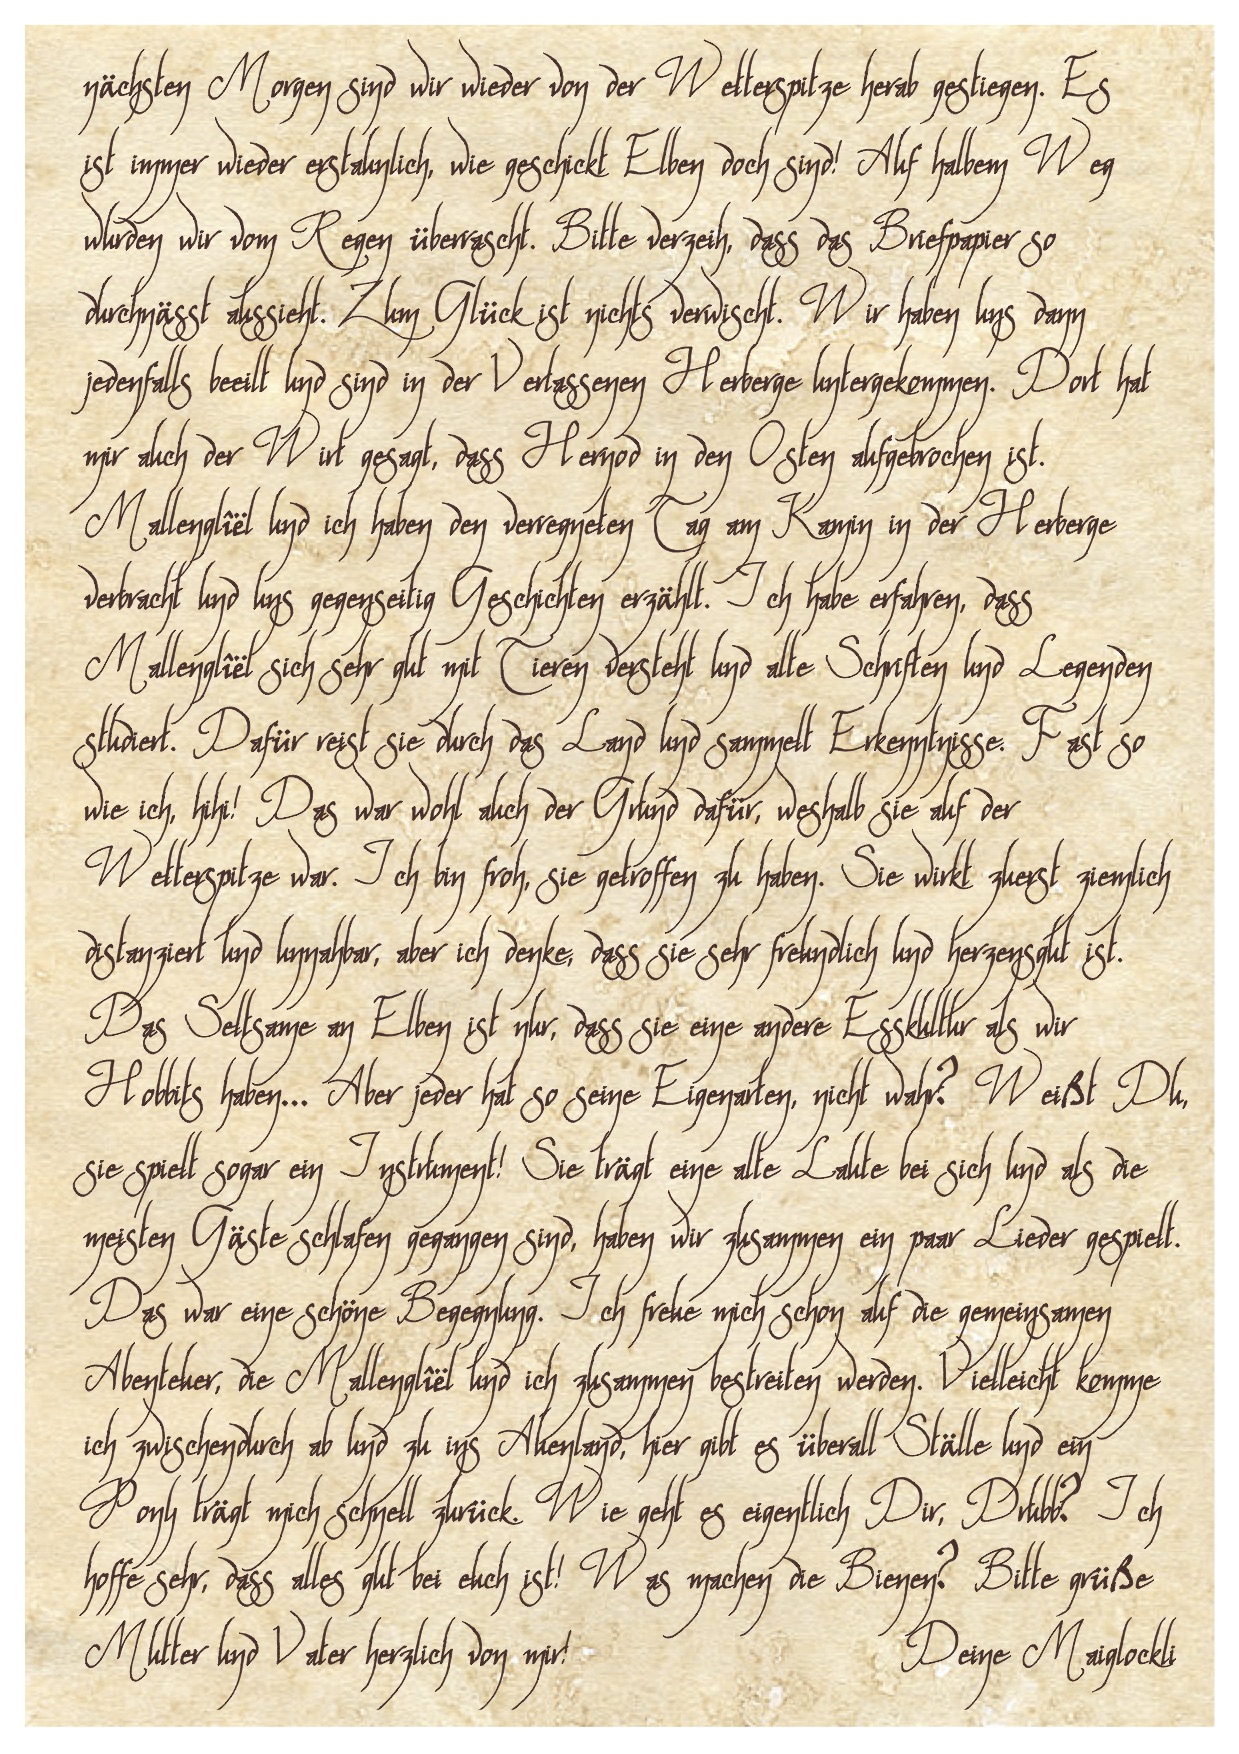 nächsten Morgen sind wir wieder von der Wetterspitze herab gestiegen. Es
ist immer wieder erstaunlich, wie geschickt Elben doch sind! Auf halbem Weg
wurden wir vom Regen überrascht. Bitte verzeih, dass das Briefpapier so
durchnässt aussieht. Zum Glück ist nichts verwischt. Wir haben uns dann
jedenfalls beeilt und sind in der Verlassenen Herberge untergekommen. Dort hat
mir auch der Wirt gesagt, dass Hernod in den Osten aufgebrochen ist.
Mallenglîël und ich haben den verregneten Tag am Kamin in der Herberge
verbracht und uns gegenseitig Geschichten erzählt. Ich habe erfahren, dass
Mallenglîël sich sehr gut mit Tieren versteht und alte Schriften und Legenden
studiert. Dafür reist sie durch das Land und sammelt Erkenntnisse. Fast so
wie ich, hihi! Das war wohl auch der Grund dafür, weshalb sie auf der
Wetterspitze war. Ich bin froh, sie getroffen zu haben. Sie wirkt zuerst ziemlich
distanziert und unnahbar, aber ich denke, dass sie sehr freundlich und herzensgut ist.
Das Seltsame an Elben ist nur, dass sie eine andere Esskultur als wir
Hobbits haben... Aber jeder hat so seine Eigenarten, nicht wahr? Weißt Du,
sie spielt sogar ein Instrument! Sie trägt eine alte Laute bei sich und als die
meisten Gäste schlafen gegangen sind, haben wir zusammen ein paar Lieder gespielt.
Das war eine schöne Begegnung. Ich freue mich schon auf die gemeinsamen
Abenteuer, die Mallenglîël und ich zusammen bestreiten werden. Vielleicht komme
ich zwischendurch ab und zu ins Auenland, hier gibt es überall Ställe und ein
Pony trägt mich schnell zurück. Wie geht es eigentlich Dir, Drubb? Ich
hoffe sehr, dass alles gut bei euch ist! Was machen die Bienen? Bitte grüße
Mutter und Vater herzlich von mir! Deine Maiglockli